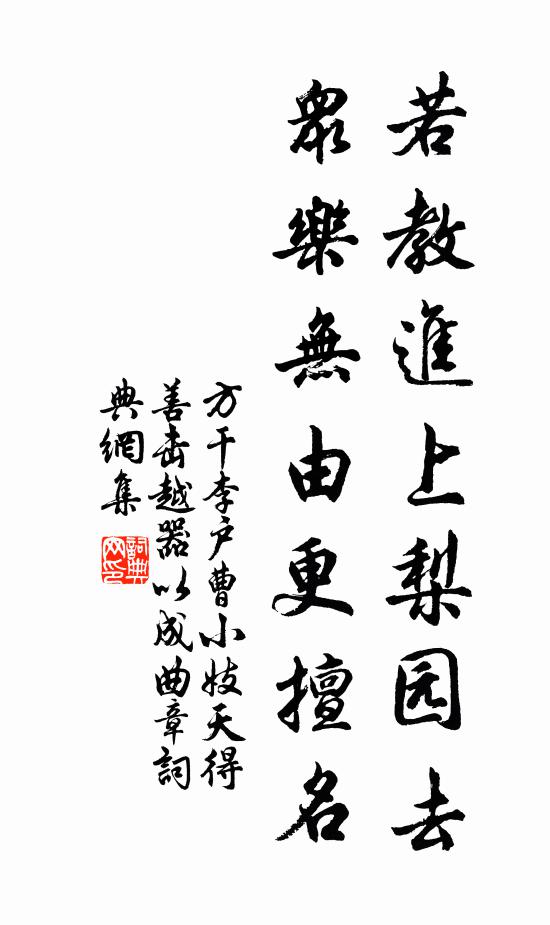 若教進上梨园去
衆樂無由更擅名
方干李户曹小妓天得
善击越器以成曲章詞
典網集
詞典
网印